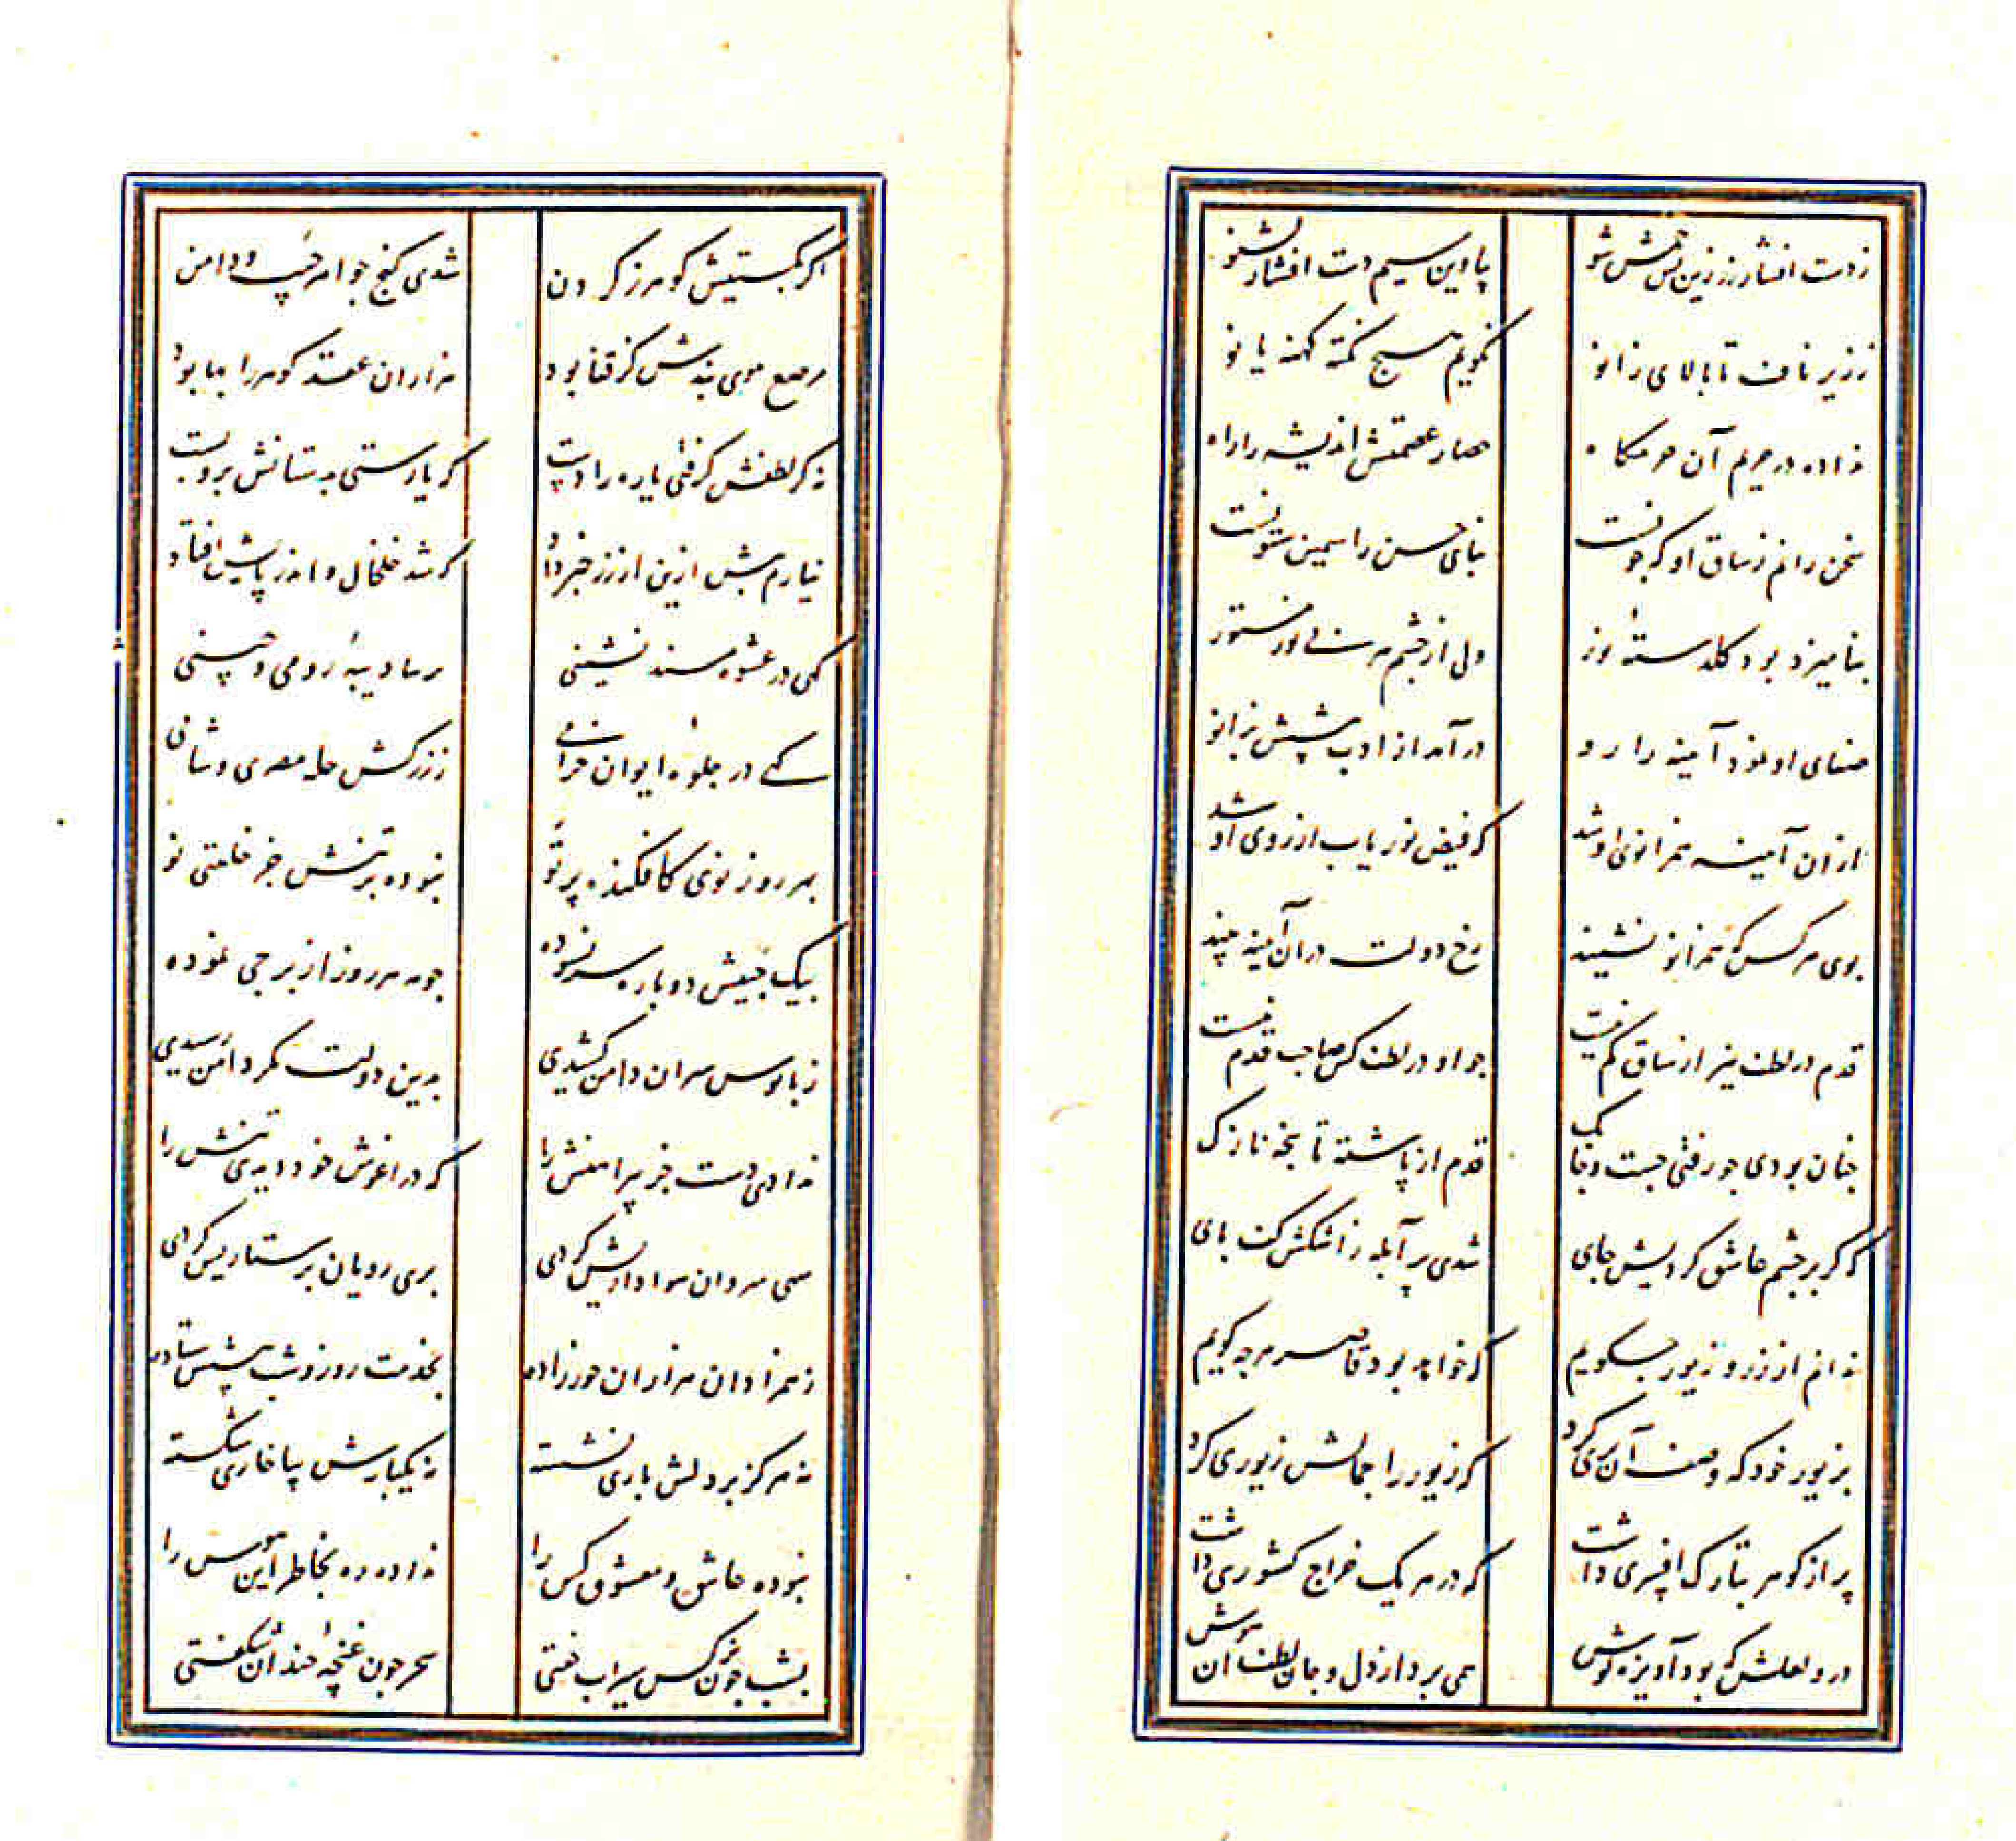 ز دست افشار زرین پس خمش شو بیا وین سیم دست افشار بشنو
ز زیر ناف تا بالای زانو نگویم هیچ نکته کهنه یا نو
نداده در حریم آن حرمگاه حصار عصمتش اندیشه را راه
سخن رانم ز ساق او که چونست بنای حسن را سیمین ستونست
بنامیزد بود گلدستهٔ نور ولی از چشم هر بی نور مستور
صفای او نمود آینه را رو درآمد از ادب پیشش بزانو
از آن آینه همزانوی او شد که فیض نور یاب از روی او شد
بوی هر کس که همزانو نشیند رخ دولت در آن آینه بیند
قدم در لطف نیز از ساق کم نیست چو او در لطف کس صاحب قدم نیست
چنان بودی چو رفتی چست و چابک قدم از پاشنه تا پنجه نازک
که گر بر چشم عاشق کردیش جای شدی پر آبله ز اشکش کف پای
ندانم از زر و زیور چگویم که خواهد بود قاصر هر چه گویم
بزیور خود که وصف آن پری کرد که زیور را جمالش زیوری کرد
پر از گوهر بتارک افسری داشت که در هر یک خراج کشوری داشت
در و لعلش که بود آویزه گوش همی برد از دل و جان لطف آن هوش
اگر بگسستیش گوهر ز گردن شدی گنج جواهر جیب و دامن
مرصع موی بندش کز قفا بود هزاران عقد گوهر را بها بود
نه گر لطفش گرفتی یاره را دست که یارستی به دستانش برو بست
نیارم بیش ازین از زر خبر داد که شد خلخال و اندر پایش افتاد
گهی در عشوه مسند نشینی مهیا دیبهٔ رومی و چینی
گهی در جلوهٔ ایوان خرامی ز زرکش حله مصری و شامی
بهر روز نوی کافکنده پرتو نبوده بر تنش جز خلعتی نو
بیک جیبش دوباره سر نسوده چو مه هر روز از برجی نموده
ز پابوس سران دامن کشیدی بدین دولت مگر دامن رسیدی
ندادی دست جز پیراهنش را که در آغوش خود دیدی تنش را
سهی سروان هواداریش کردی پری رویان پرستاریش کردی
ز همزادان هزاران حورزاده بخدمت روز و شب پیشش ستاده
نه هرگز بر دلش باری نشسته نه یکبارش بپا خاری شکسته
نبوده عاشق و معشوق کس را نداده ره بخاطر این هوس را
بشب چون نرگس سیراب خفتی سحر چون غنچهٔ خندان شکفتی